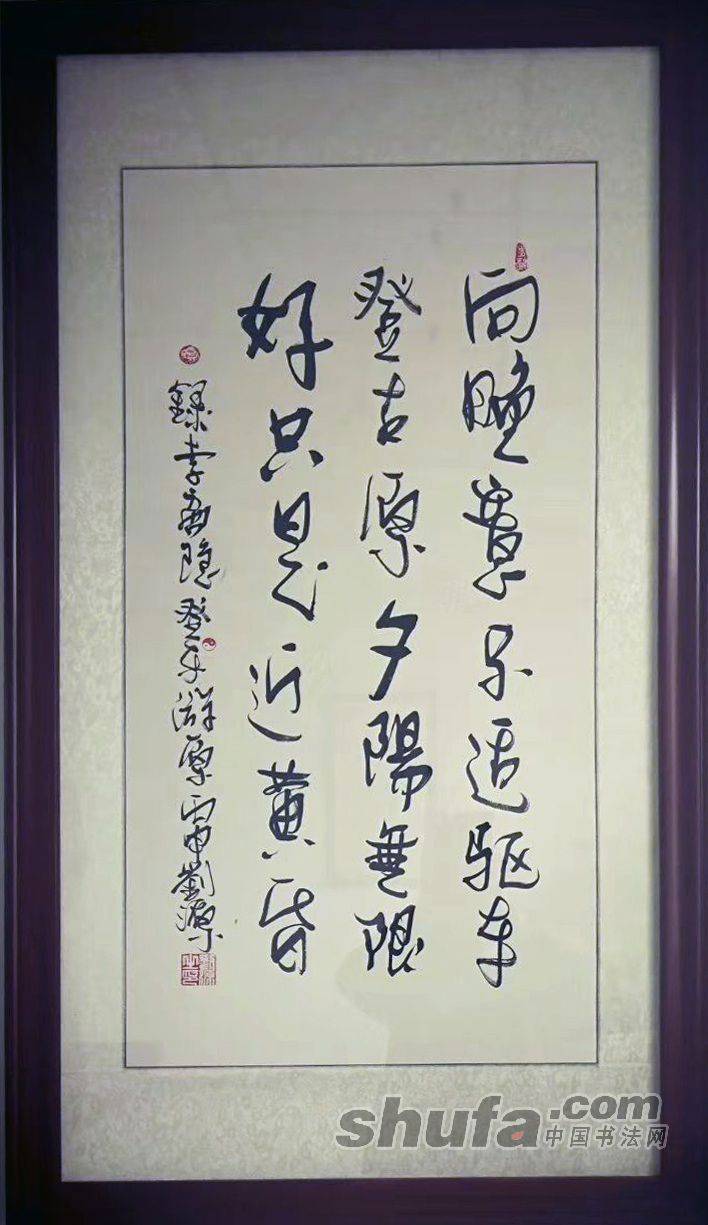 向晚意不适驱车
登古原夕陽無限
好只是近黄昏
録李商隐登乐游原丙申劉源
shufa.com
中国书法网